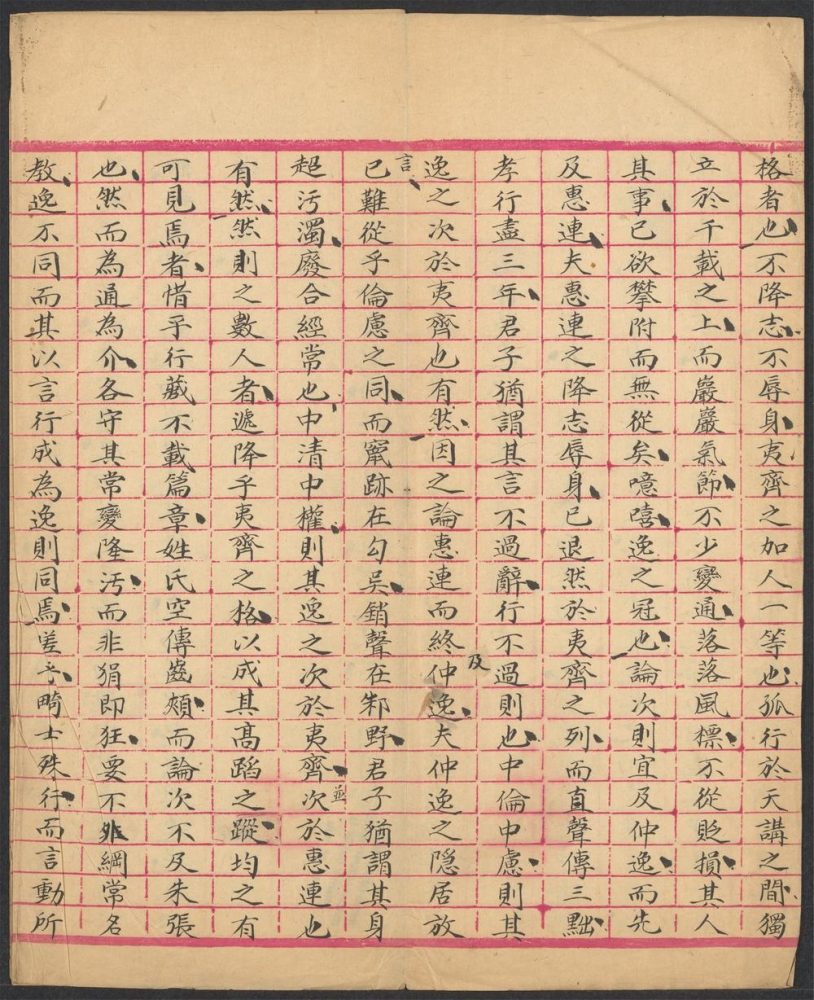 格者也不降志不辱身夷齊之加人一等也孤行於天講之間獨
立於千載之上而巖巖氣節不少變通落落風標不從貶損其人
其事已欲攀附而無從矣噫嘻逸之冠也論次則宜及仲逸而先
及惠連夫惠連之降志辱身已退然於夷齊之列而直聲傳三黜
孝行盡三年君子猶謂其言不過辭行不過則也中倫中慮則其
逸之次於夷齊也有然因之論惠連而終及仲逸夫仲逸之隱居放言
已難從乎倫慮之同而竄跡在勾吳銷聲在邾野君子猶謂其身
超污濁廢合經常也中清中權則其逸之次於夷齊並次於惠連也
有然然則之數人者遞降乎夷齊之格以成其高蹈之蹤均之有
可見焉者惜乎行藏不載篇章姓氏空傳齒頰而論次不及朱張
也然而為通為介各守其常變隆污而非狷即狂要不外綱常名
教逸不同而其以言行成為逸則同焉嗟乎畸士殊行而言動所